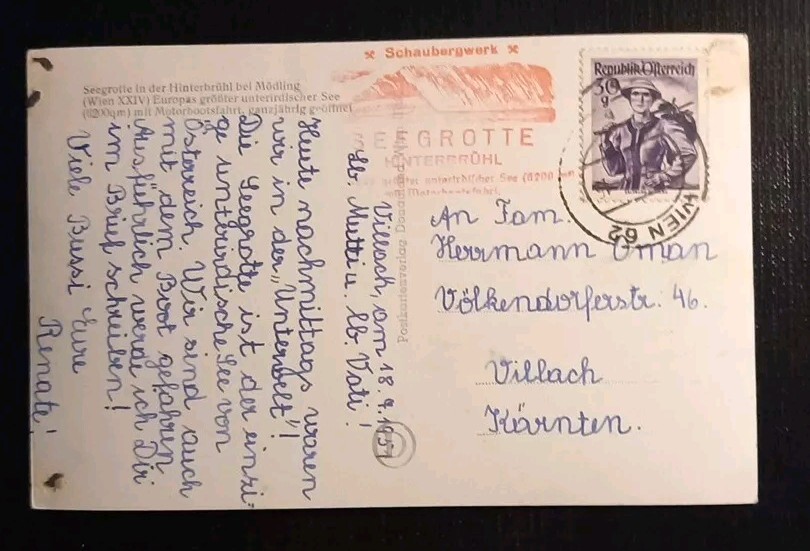 Seegrotte in der Hinterbrühl bei Mödling
(Wien XXIV) Europas größter unterirdischer See
(6200qm) mit Motorbootsfahrt, ganzjährig geöffnet
Schaubergwerk
SEEGROTTE
HINTERBRÜHL
unterirdischer See (6200 qm)
mit Motorbootsfahrt.
Republik Österreich
30 g
WIEN 62
Villach, am 18.9.1951
Lb. Mutti u. lb. Vati!
Heute nachmittags waren
wir in der „Unterwelt"!
Die Seegrotte ist der einzi-
ge unterirdische See von
Österreich. Wir sind auch
mit dem Boot gefahren.
Ausführlich werde ich Dir
im Brief schreiben!
Viele Bussi Eure
Renate!
An Fam.
Herrmann Oman
Völkendorferstr. 46.
Villach
Kärnten.